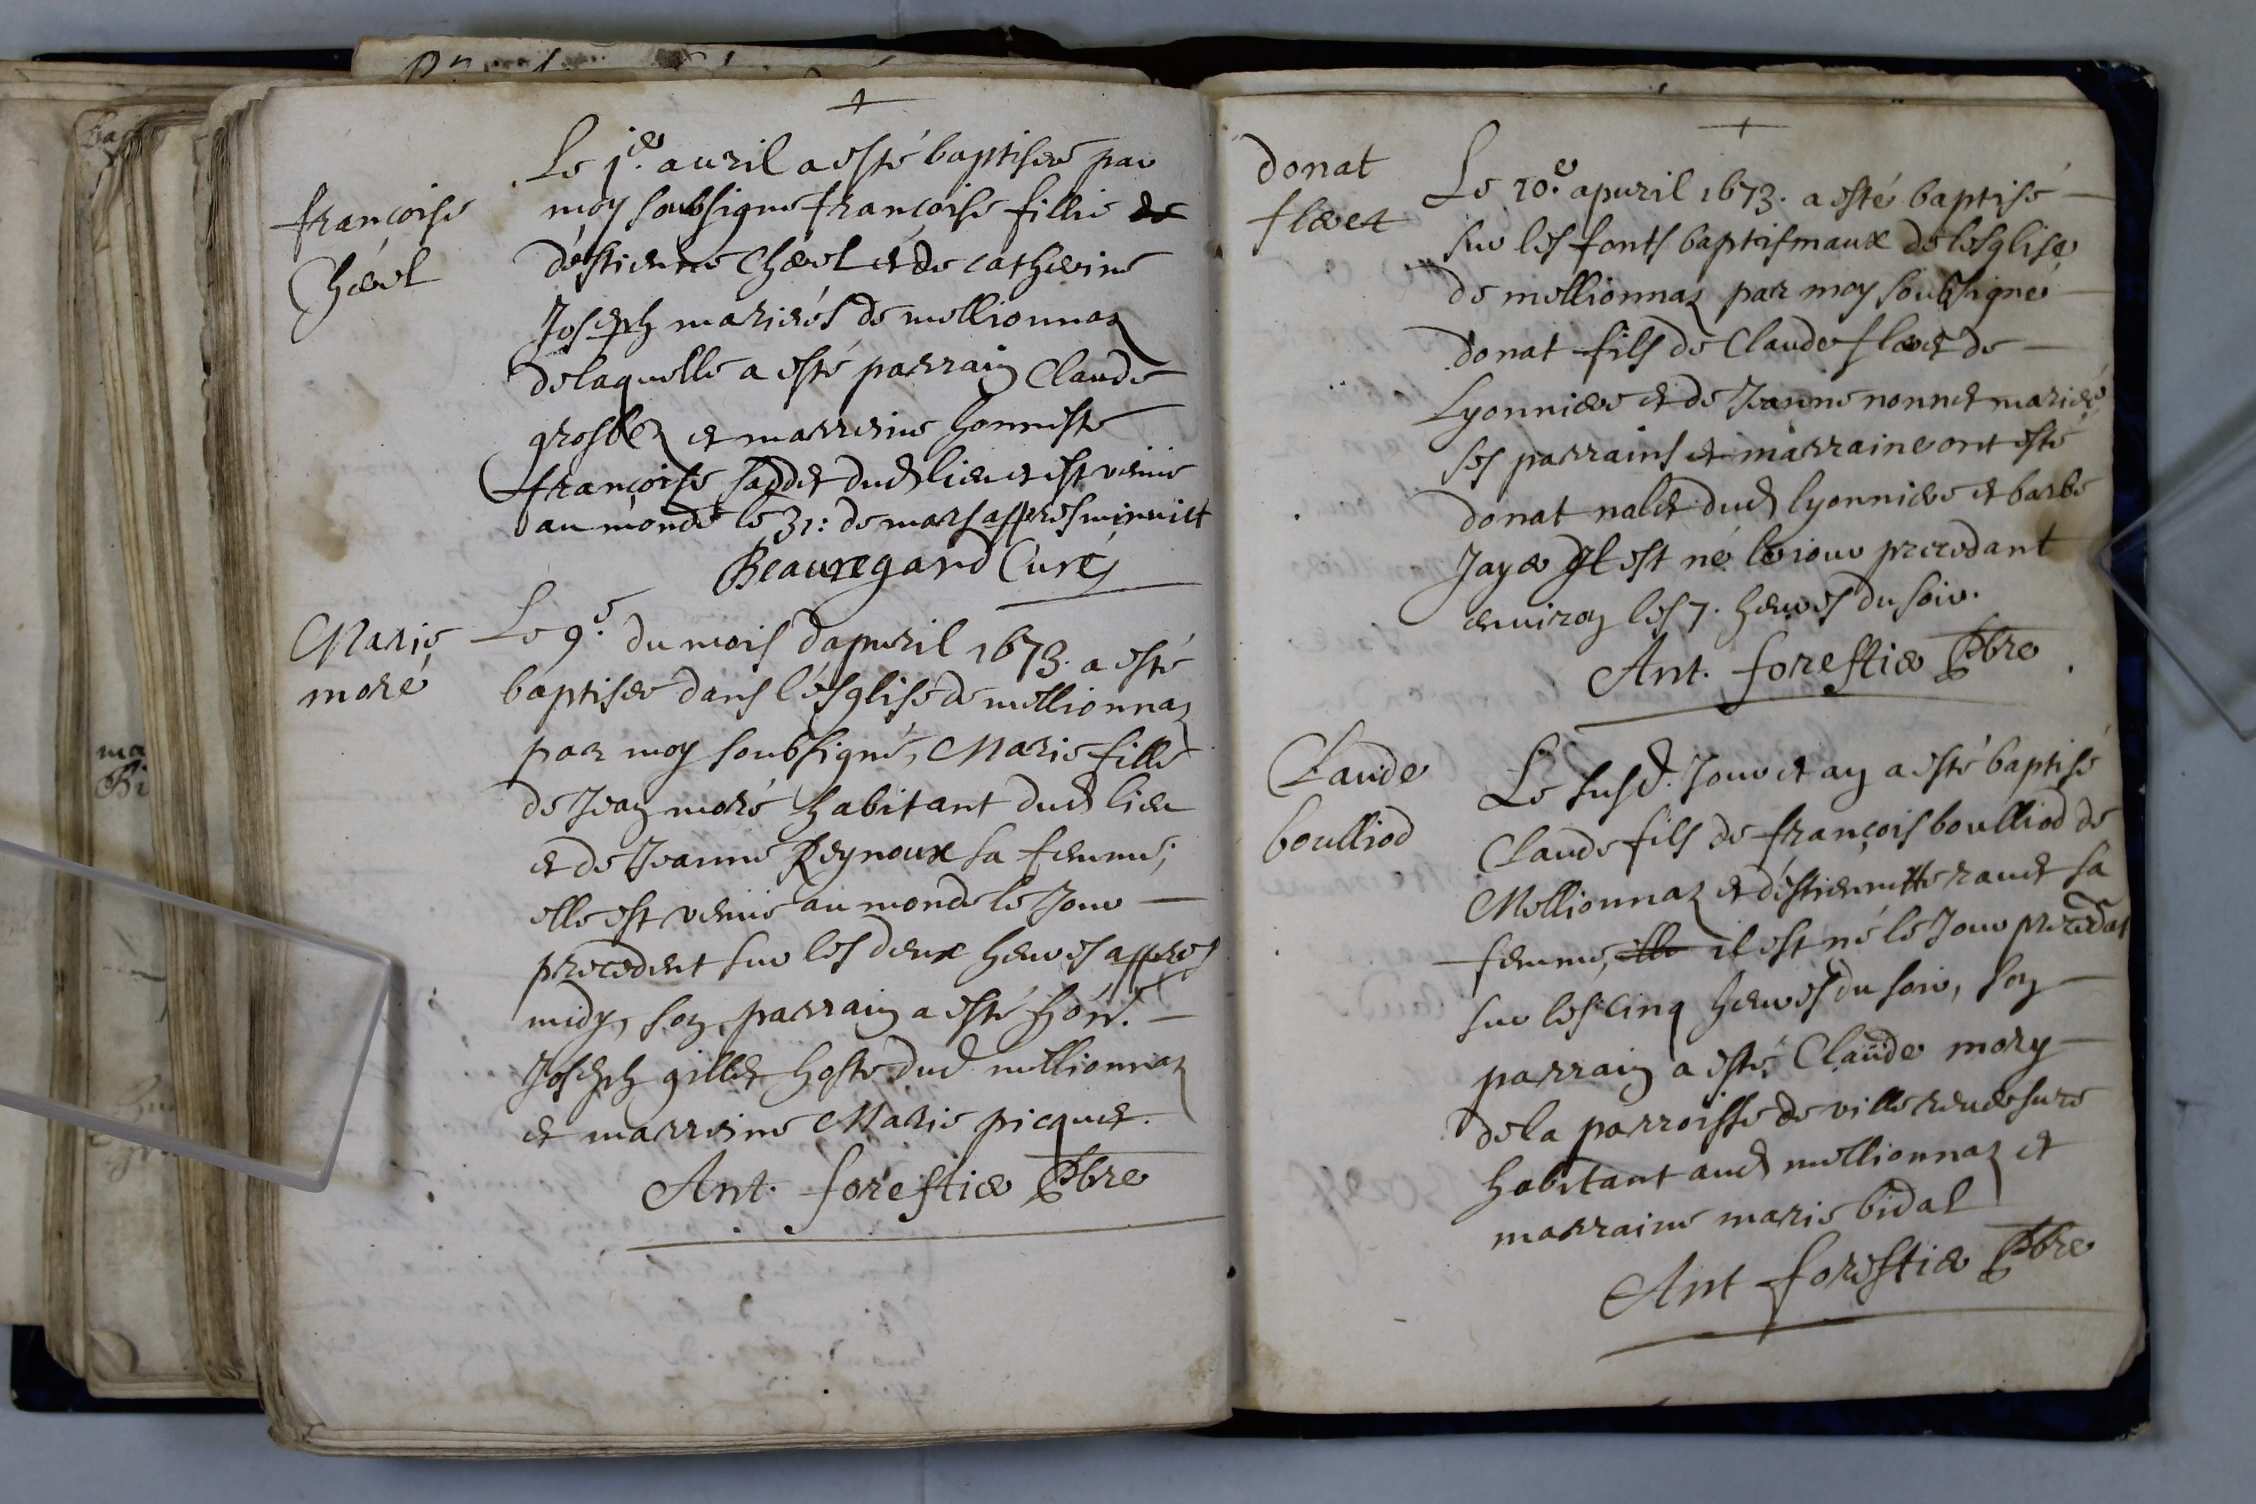 françoise
Chevel
Le 1er. auril a esté baptisée par
moy soubsigne françoise fillie de
d'éstienne Chevel et de catherine
Joseph mariés de mellionnaz
de laquelle a esté parrain Claude
grosbez et marreine honneste
françoise faddet dud lieu et est venüe
au monde le 31: de mars appres minuict
Beauregard Curé
Marie
moré
Le 9e. du mois d'apuril 1673. a esté
baptisee dans l'ésglise de mellionnaz
par moy soubsigné, Marie fille
de Jean moré habitant dud lieu
et de Jeanne Reynoux sa femme;
elle est venüe au monde le Jour
precedent sur les deux heures appres
midy, son parrain a esté hon.
Joseph gillet hoste dud mellionnaz
et marreine Marie picquet.
Ant. forestier Pbre
donat
floret
Le 10e. apuril 1673. a esté baptisé
sur les fonts baptismaux de lesglise
de mellionnaz par moy soubsigné
donat fils de Claude floret de
Lyonniere et de Jeanne nonnet mariés
ses parrains et marraine ont esté
donat nalet dud lyonniere et barbe
Jaye Il est né le iour precedant
enuiron les 7. heures du soir.
Ant. forestier Pbre
Claude
boulliod
Le susd. Jour et an a esté baptisé
Claude fils de françois boulliod de
Mellionnaz et d'éstiennette rauet sa
femme, elle il est né le Jour precedat
sur les cinq heures du soir, son
parrain a esté Claude mory
de la parroisse de ville reuersure
habitant aud mellionnaz et
marraine marie bidal
Ant forestier Pbre